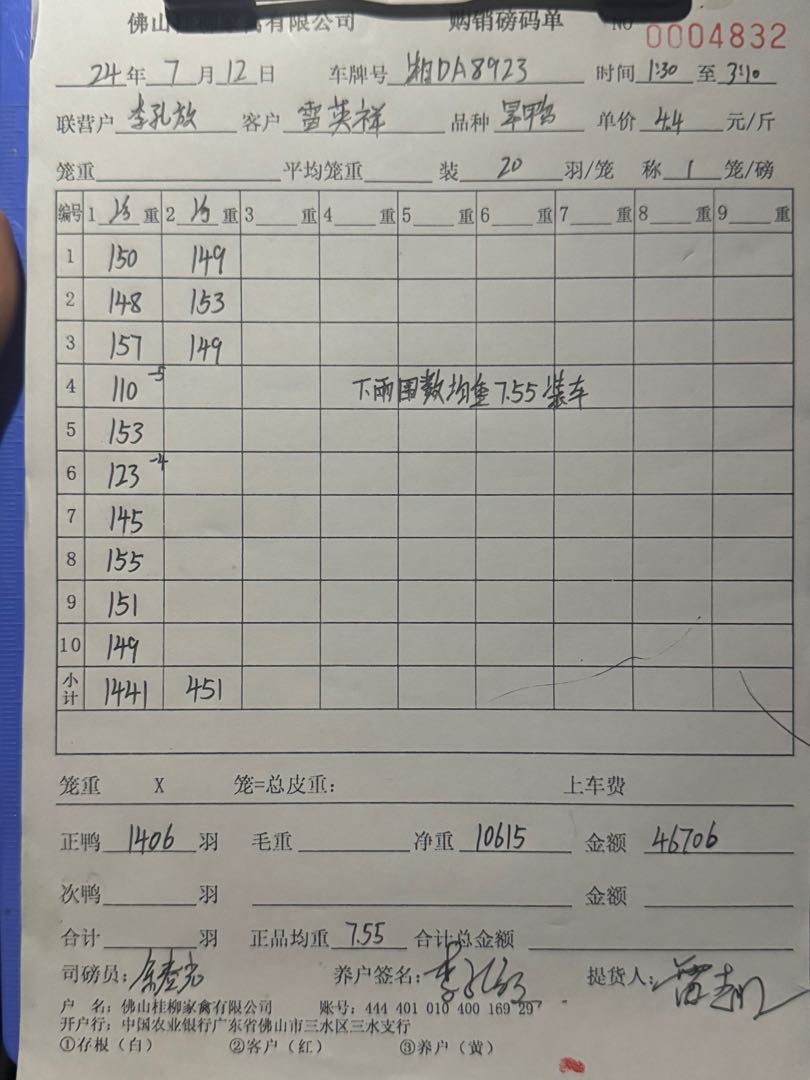 佛山桂柳家禽有限公司 购销磅码单 NO 0004832
24年 7月12日 车牌号 湘DA8923 时间 1:30 至 3:10
联营户 李孔放 客户 雷英祥 品种 旱鸭 单价 4.4 元/斤
笼重 平均笼重 装 20 羽/笼 称 1 笼/磅
编号 1 均 重 2 均 重 3 重 4 重 5 重 6 重 7 重 8 重 9 重
1 150 149
2 148 153
3 157 149
4 110 -5 下雨围数均重7.55装车
5 153
6 123 -4
7 145
8 155
9 151
10 149
小计 1441 451
笼重 X 笼=总皮重: 上车费
正鸭 1406 羽 毛重 净重 10615 金额 46706
次鸭 羽 金额
合计 羽 正品均重 7.55 合计总金额
司磅员: 养户签名: 李孔放 提货人:
户 名: 佛山桂柳家禽有限公司 账号: 444 401 010 400 169 29
开户行: 中国农业银行广东省佛山市三水区三水支行
①存根(白) ②客户(红) ③养户(黄)